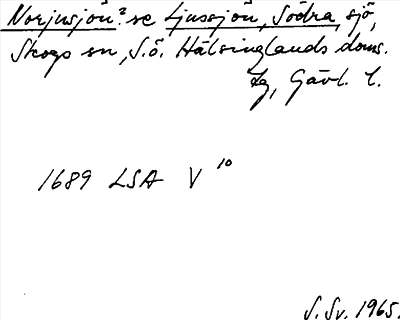 Norjusjön? se Ljussjön, Södra, sjö,
Skogs sn, S.ö. Hälsinglands doms.
Lg, Gävl. l.
1689 LSA V 10
S. Sv. 1965.